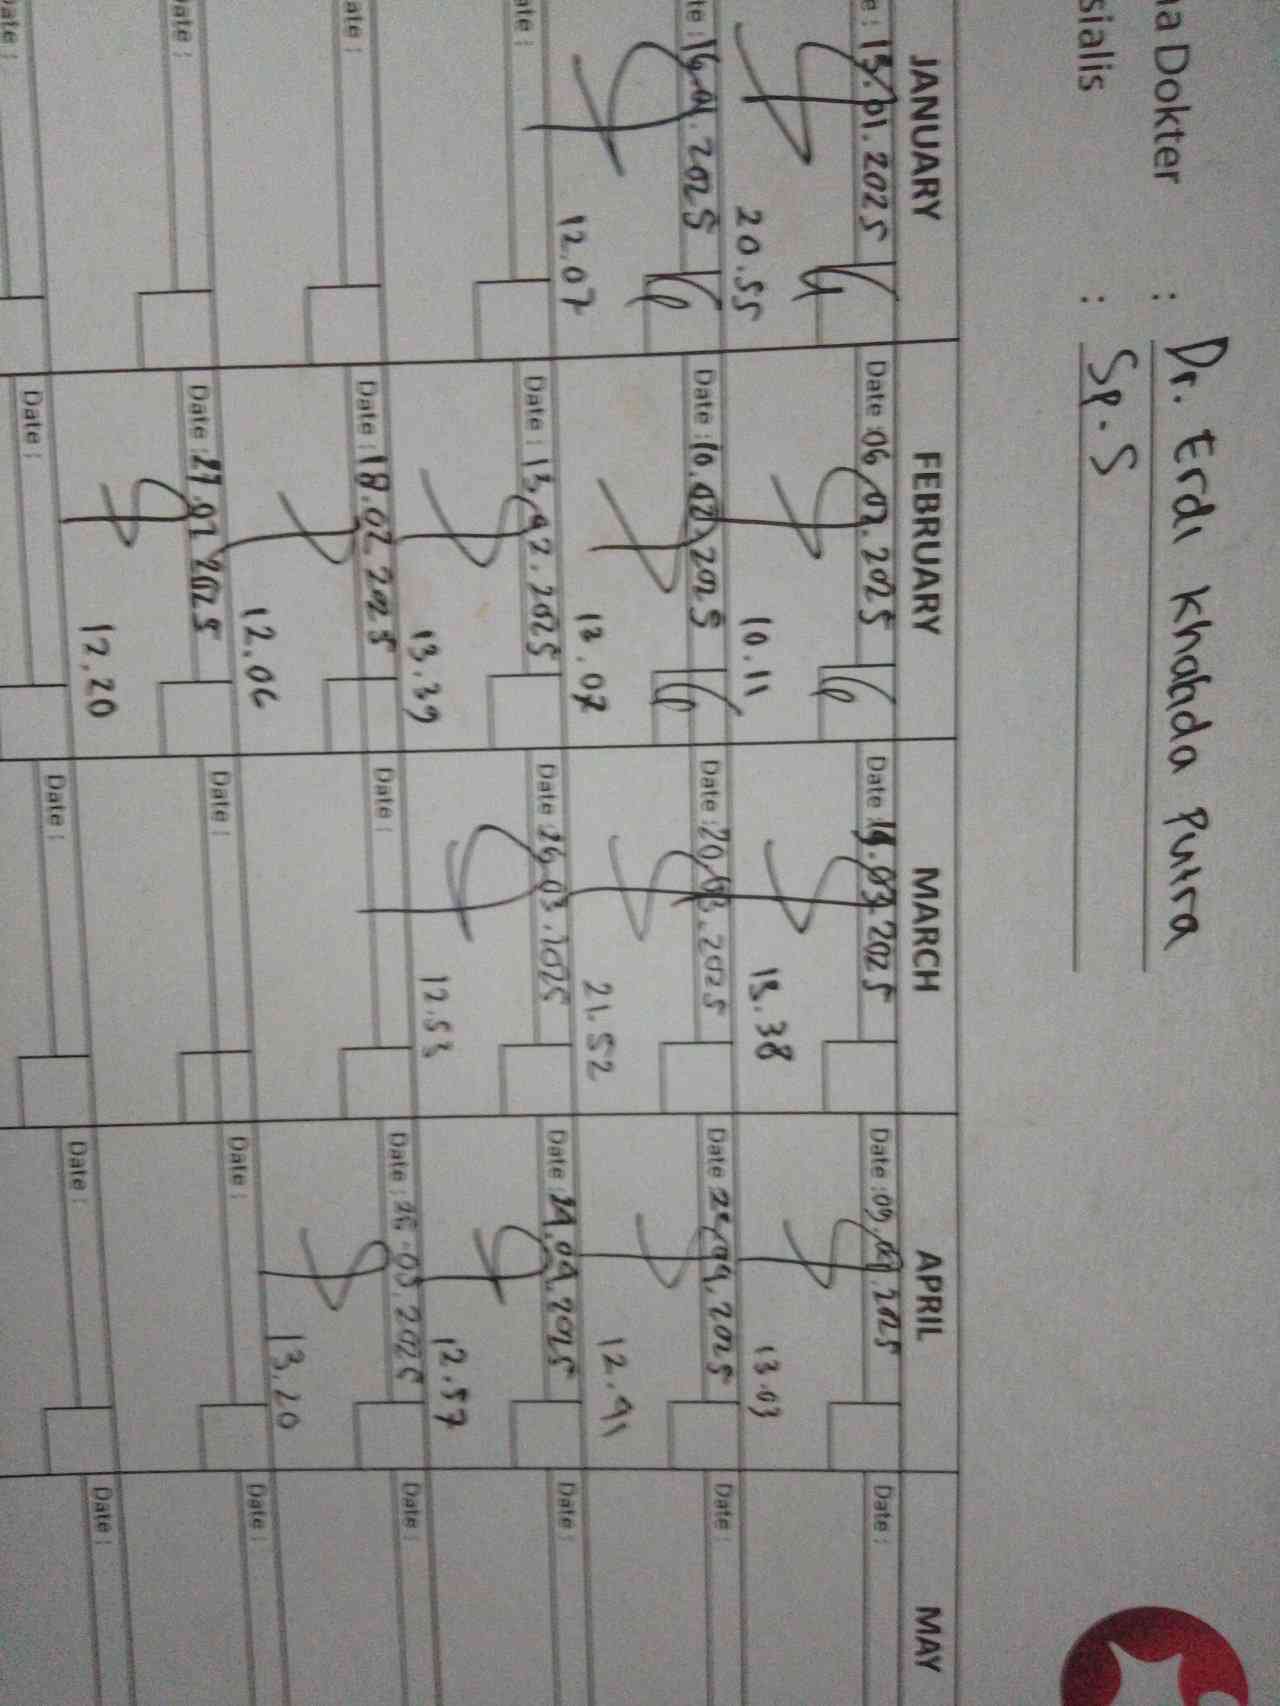 a Dokter : Dr. Erdi Khalada Putra
sialis : Sp.S
JANUARY FEBRUARY MARCH APRIL MAY
e : 13.01.2025
20.55
Date : 06.02.2025
10.11
Date : 14.03.2025
13.38
Date : 09.04.2025
13.03
Date :
te : 16.01.2025
12.07
Date : 10.02.2025
13.07
Date : 20.03.2025
21.52
Date : 2.04.2025
12.41
Date :
ate :
Date : 13.02.2025
13.39
Date : 26.03.2025
12.53
Date : 24.04.2025
12.57
Date :
ate :
Date : 18.02.2025
12.06
Date :
Date : 26.05.2025
13.20
Date :
ate :
Date : 27.02.2025
12.20
Date :
Date :
Date :
ate :
Date :
Date :
Date :
Date :